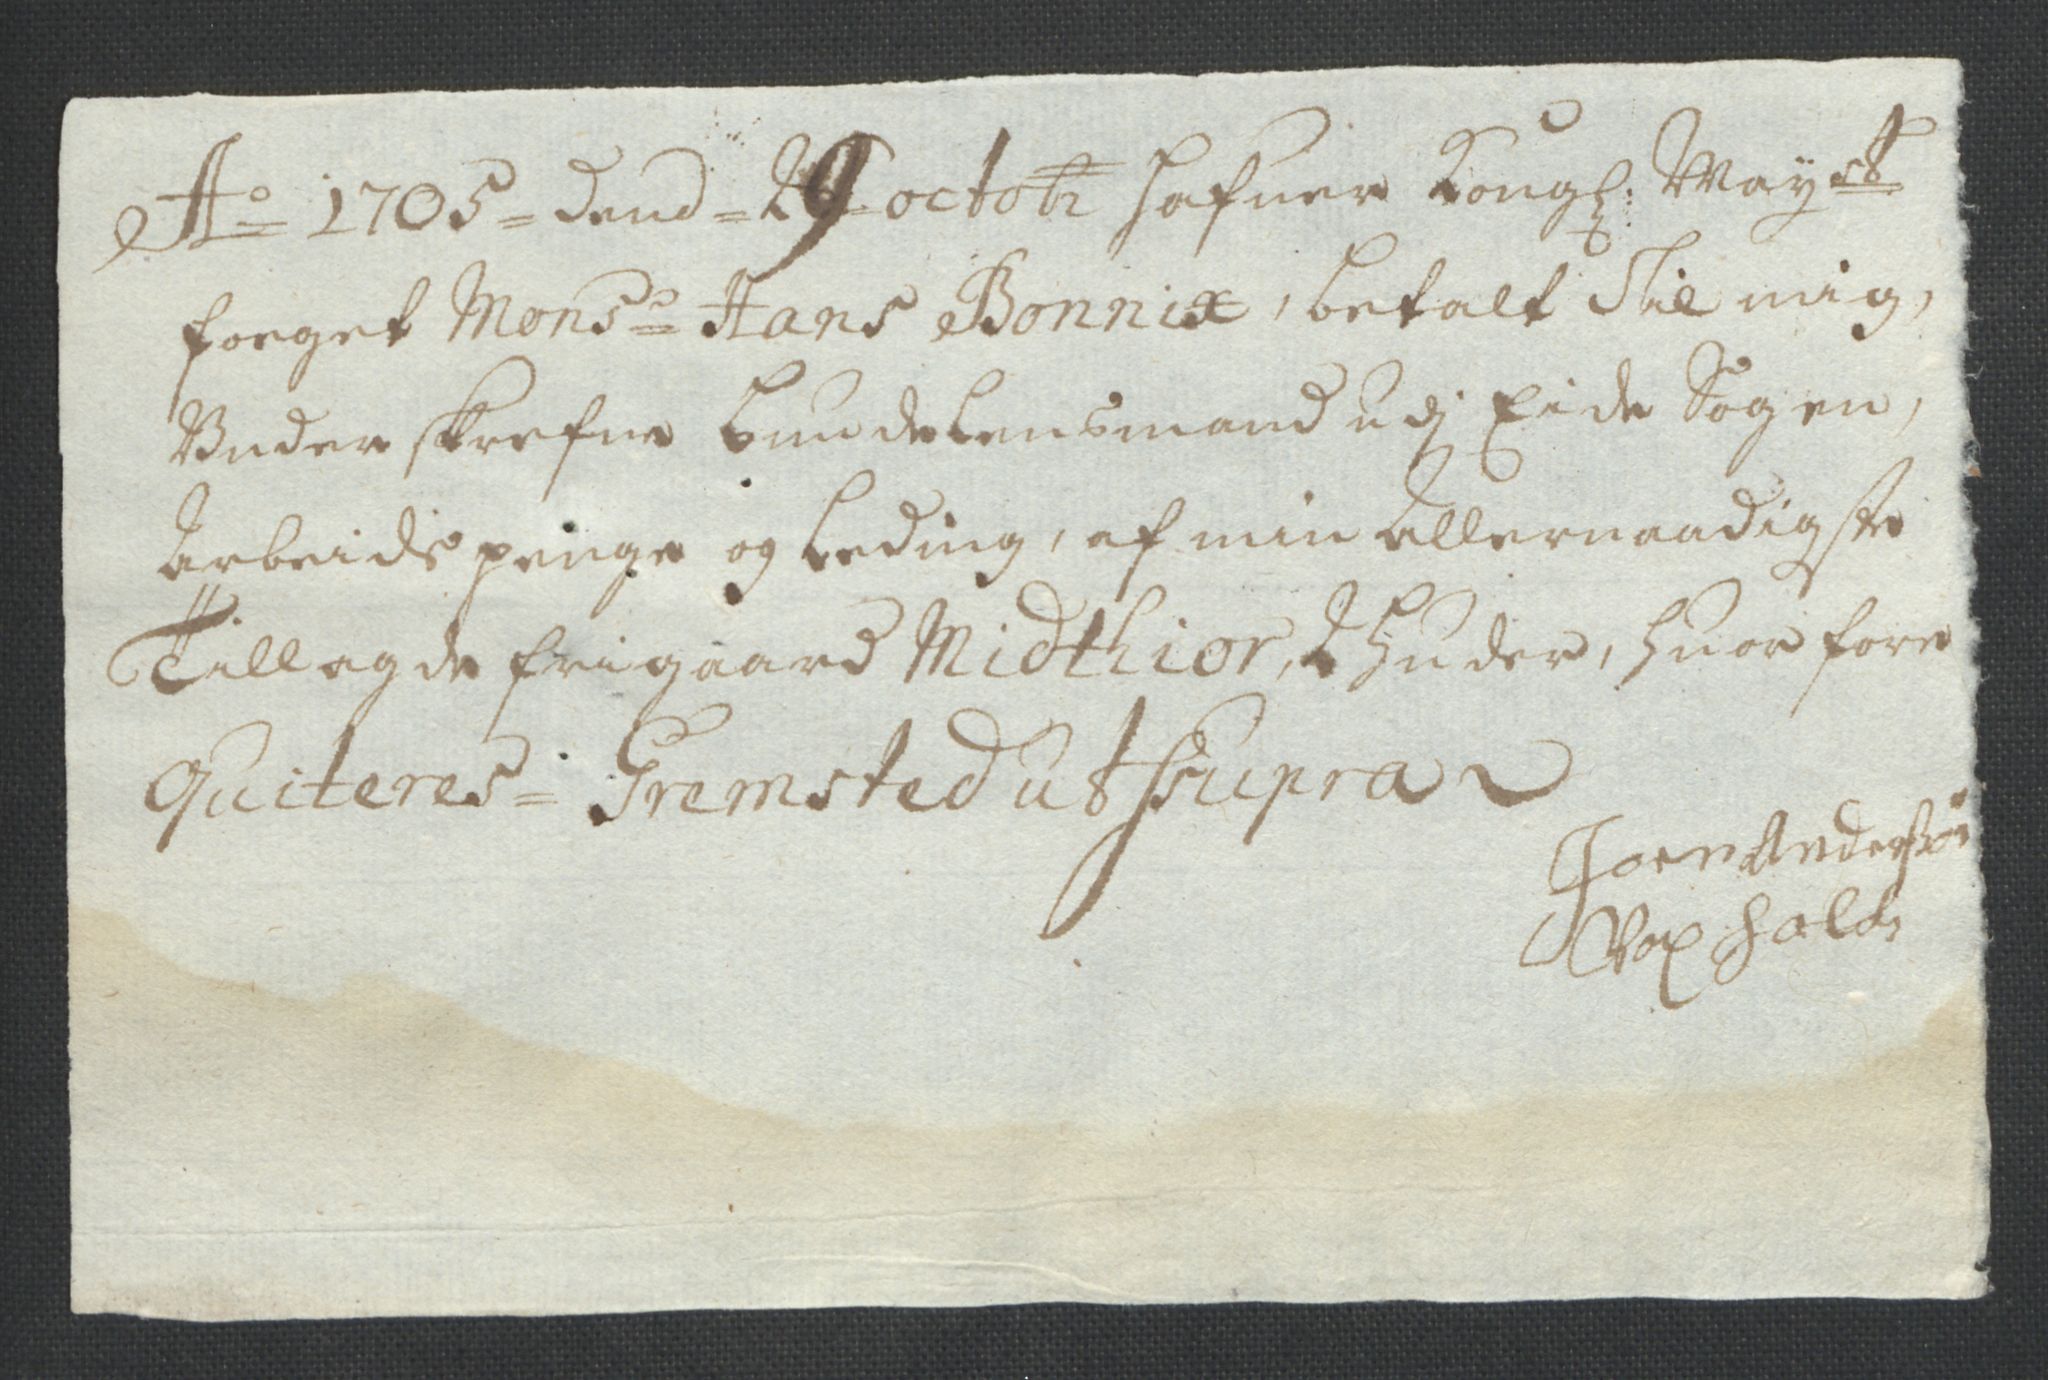 Ao 1705 = dend = 29 octobr hafuer Kongl: Mayest
foeget Monsr Hans Bonnix, betalt Till mig,
Vnder skrefne bundelensmand udj Eide Sogen,
Arbeids penge og Leding, af min Allernaadigste
Tillagde frigaard Midthior, 2 Huder, huor fore
Quiteres = Gremsted ut Supra
Joen Andersøn
Voxhalds